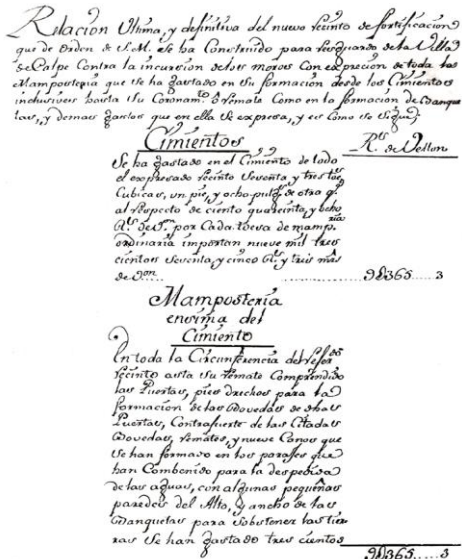 Relacion Ultima, y definitiva del nuevo recinto de fortificacion
que de Orden de S.M. se ha Construido para resguardo de la Villa
de Calpe Contra la incursion de los moros Con expreción de toda la
Mampostería que se ha gastado en su formación desde los Cimientos
inclusives hasta su Coronam.to ò remate Como en la formación de Banque
tas, y demas gastos que en ella se expresa, y es como se sigue;
Cimientos
R.s de Vellon
Se ha gastado en el Cimiento de todo
el expresado recinto Setenta y tres toe.s
Cubicas, un pie, y ocho pulg.s de otra q.e
al respecto de ciento quareinta, y ocho
R.s de v.n por Cada toesa de mamp.ria
ordinaria importan nueve mil tres
cientos Setenta, y cinco R.s y tres mrs
de von
9D365......3
Mampostería
ensima del
Cimiento
En toda la Circunferencia del refer.do
recinto asta su remate Comprendido
las Puertas, pies drechos para la
formación de las Bovedas de dhas
Puertas, Contrafuerte de las Citadas
Bovedas, remates, y nueve Canos que
se han formado en los parajes que
han Combenido para la despedida
de las aguas, con algunas pequeñas
paredes del Alto, y ancho de las
Banquetas para Sobstener las tier
ras se han gastado tres cientos
9D365......3